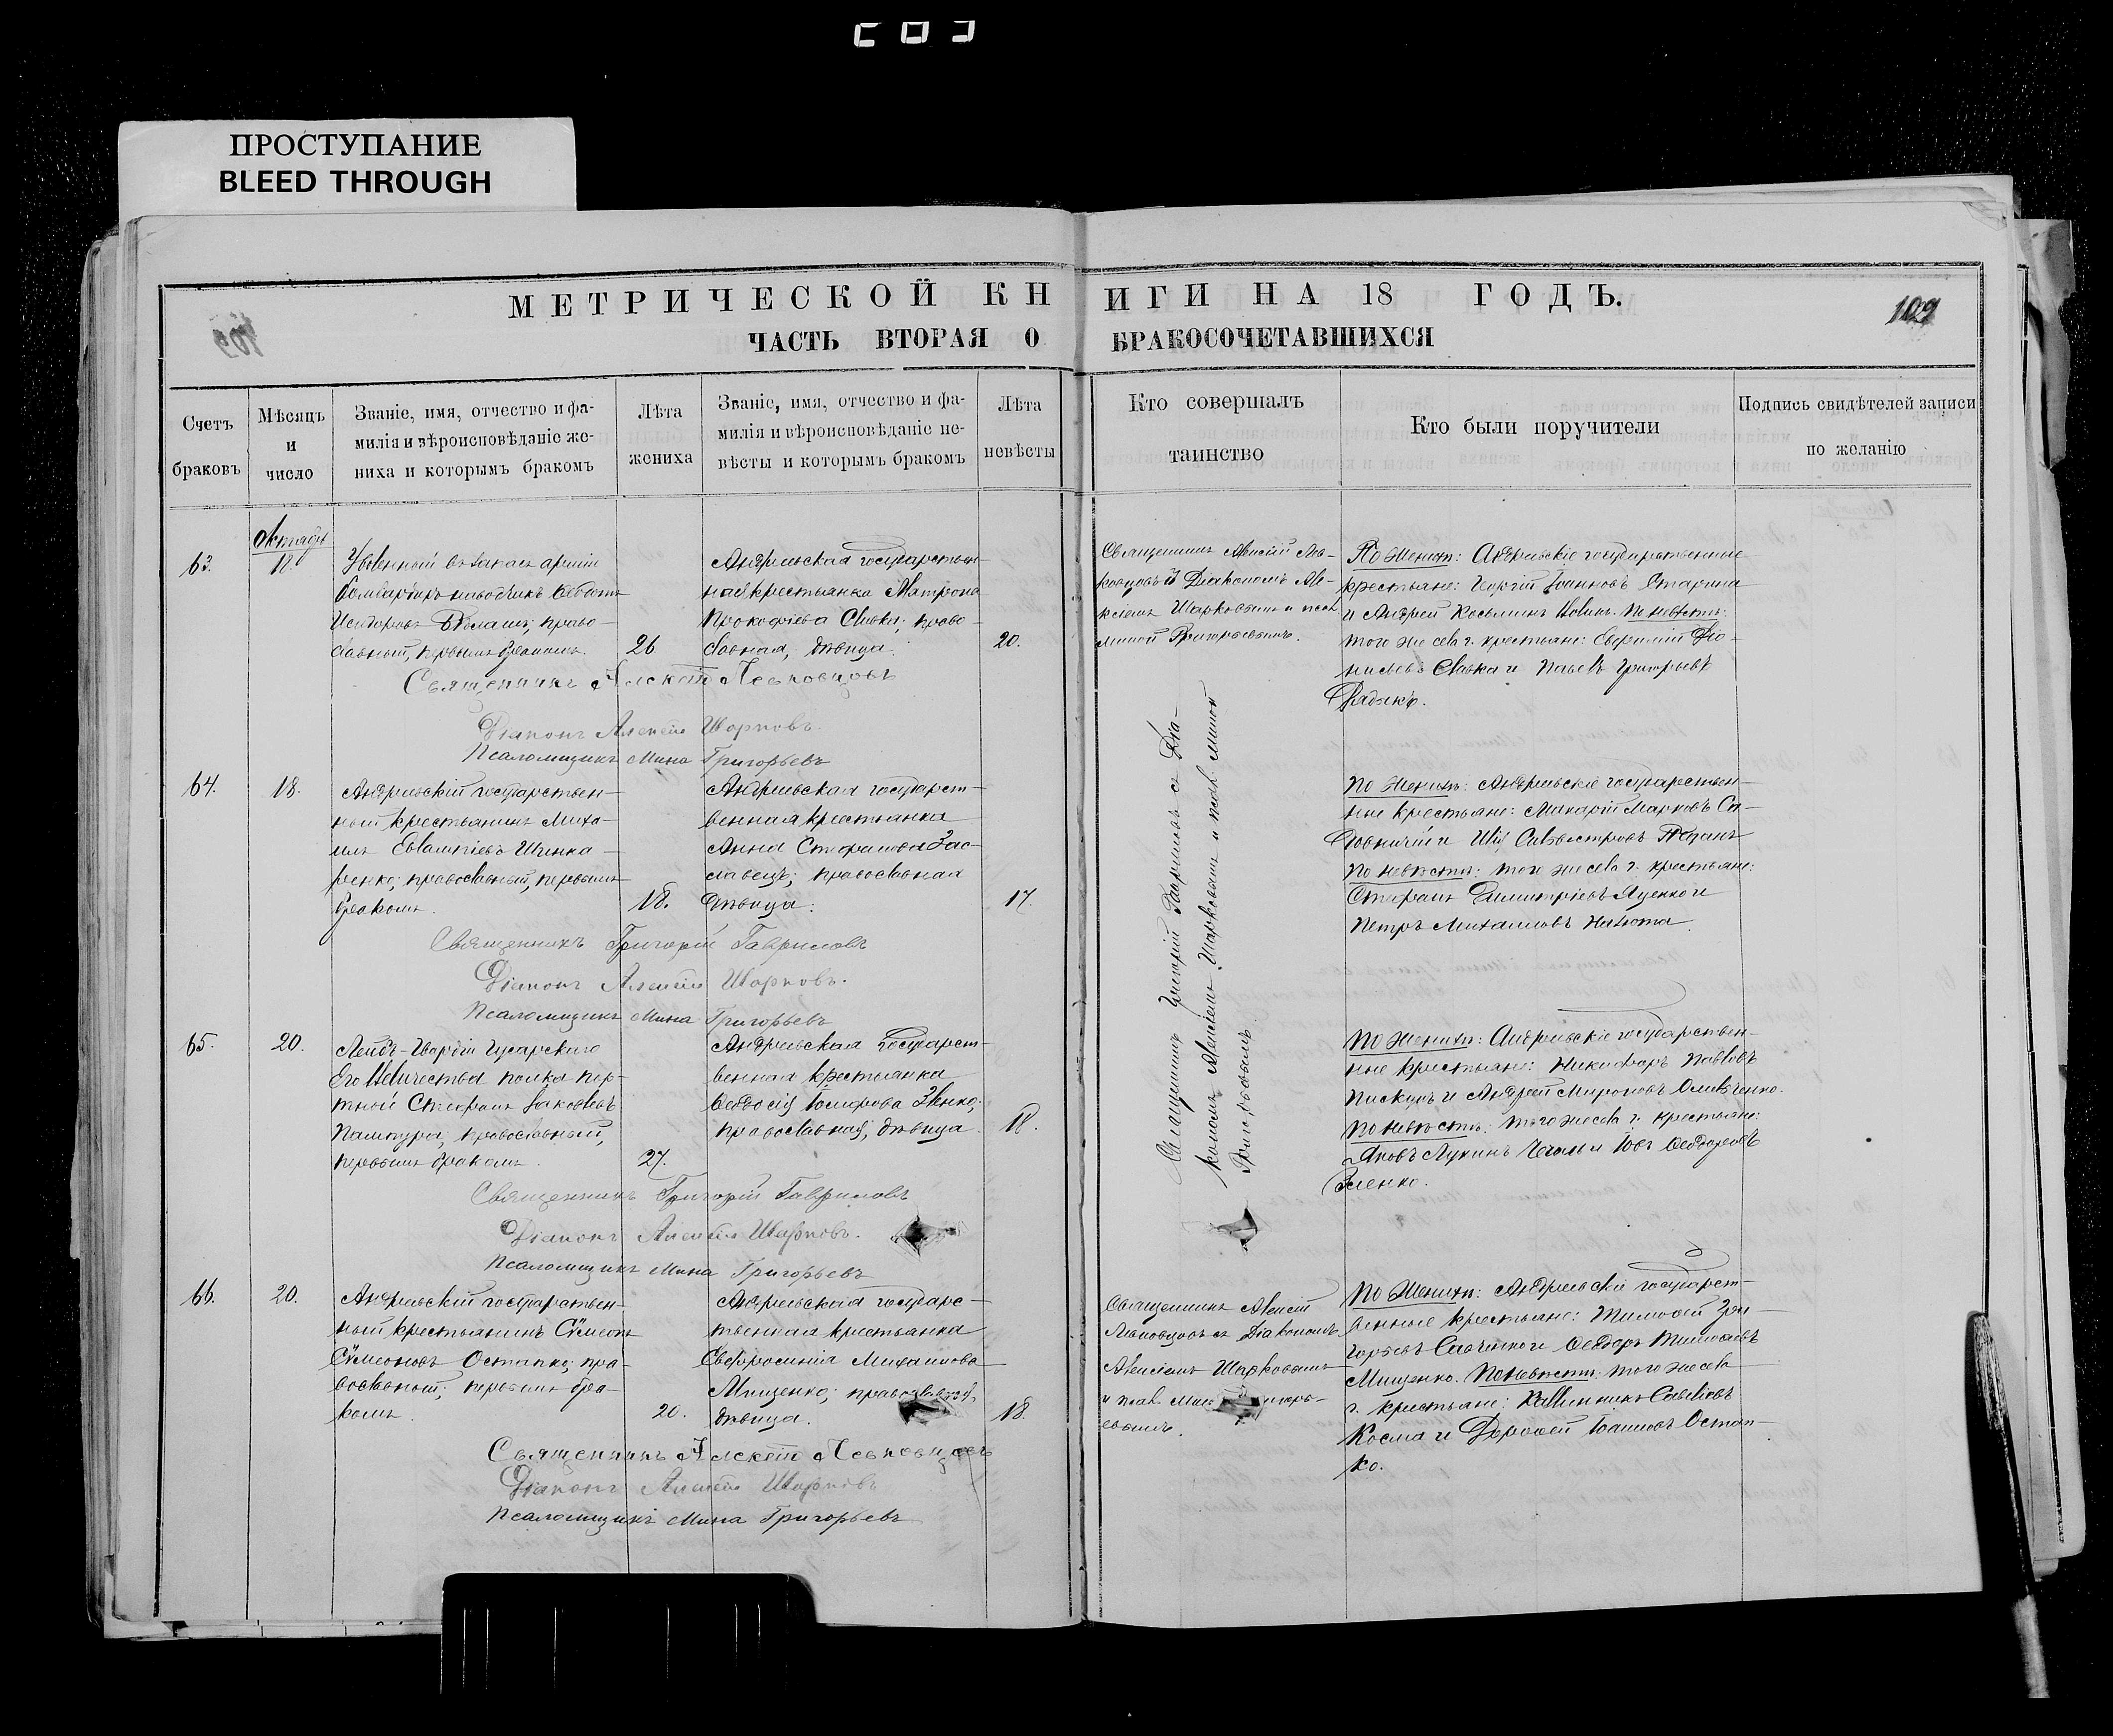 ПРОСТУПАНИЕ
BLEED THROUGH
МЕТРИЧЕСКОЙ КНИГИ НА 18 ГОДЪ.
109
ЧАСТЬ ВТОРАЯ О БРАКОСОЧЕТАВШИХСЯ
Счетъ браковъ
Мѣсяцъ и число
Званіе, имя, отчество и фа-
милія и вѣроисповѣданіе же-
ниха и которымъ бракомъ
Лѣта жениха
Званіе, имя, отчество и фа-
милія и вѣроисповѣданіе не-
вѣсты и которымъ бракомъ
Лѣта невѣсты
Кто совершалъ
таинство
Кто были поручители
Подпись свидѣтелей записи
по желанію
63.
Октябр
18.
Уволенный въ запасъ арміи
бомбардиръ наводчикъ
Исидоровъ право-
славный, первымъ бракомъ.
26
Андреевская государствен-
ная крестьянка Матрона
Прокофіева Сивка; право-
славная, дѣвица.
20.
Священникъ Алексій Ле-
ковцовъ Діакономъ Але-
ксіемъ Шарковымъ и псал.
Миной Григорьевымъ.
По женихѣ: Андреевскіе государственные
крестьяне: Георгій Іоанновъ Старина
и Андрей Косьминъ По невѣстѣ:
того же села г. крестьяне: Евфимій Діо-
нисьевъ Сивка и Григорьевъ
Священникъ Алексѣй Левковцовъ
Діаконъ Алексѣй Шарковъ.
Псаломщикъ Мина Григорьевъ
64.
18.
Андреевскій государствен-
ный крестьянинъ Миха-
илъ Евлампіевъ Шинка-
ренко; православный, первымъ
бракомъ.
18.
Андреевская государст-
венная крестьянка
Анна Стефанова Зас-
лавецъ; православная
дѣвица.
17.
Священникъ Григорій Гавриловъ съ Діа-
кономъ Алексіемъ Шарковымъ и псал. Миной
Григорьевымъ
По женихѣ: Андреевскіе государствен-
ные крестьяне: Макарій Марковъ Са-
довничій и Сильвестровъ
По невѣстѣ: того же села г. крестьяне:
Стефанъ Димитріевъ Яценко и
Петръ Михаиловъ
Священникъ Григорій Гавриловъ
Діаконъ Алексѣй Шарковъ.
Псаломщикъ Мина Григорьевъ
65.
20.
Лейбъ-Гвардіи Гусарскаго
Его Величества полка
Стефанъ Іаковлевъ
православный,
первымъ бракомъ.
27.
Андреевская государст-
венная крестьянка
Ѳеодосія
православная, дѣвица
18.
По женихѣ: Андреевскіе государствен-
ные крестьяне: Никифоръ Павловъ
Пискунъ и Андрей Мироновъ Омельченко.
По невѣстѣ: того же села г. крестьяне:
Яковъ Лукинъ и Ѳеодоровъ
Священникъ Григорій Гавриловъ
Діаконъ Алексѣй Шарковъ.
Псаломщикъ Мина Григорьевъ
66.
20.
Андреевскій государствен-
ный крестьянинъ Сѵмеонъ
Сѵмеоновъ Остапко; пра-
вославный; первымъ бра-
комъ
20.
Андреевская государс-
твенная крестьянка
Евфросинія Михаилова
Мищенко; православная,
дѣвица.
18.
Священникъ Алексій
Левковцовъ съ Діакономъ
Алексіемъ Шарковымъ
и псал.
евымъ.
По женихѣ: Андреевскіе государст-
венные крестьяне: Тимоѳей Гри-
горьевъ и Ѳеодоръ Тимоѳеевъ
Мищенко. По невѣстѣ: того же села
г. крестьяне: Каллиникъ Савеліевъ
Косма и Дороѳей Іоанновъ Остап-
ко.
Священникъ Алексѣй Левковцовъ
Діаконъ Алексѣй Шарковъ
Псаломщикъ Мина Григорьевъ